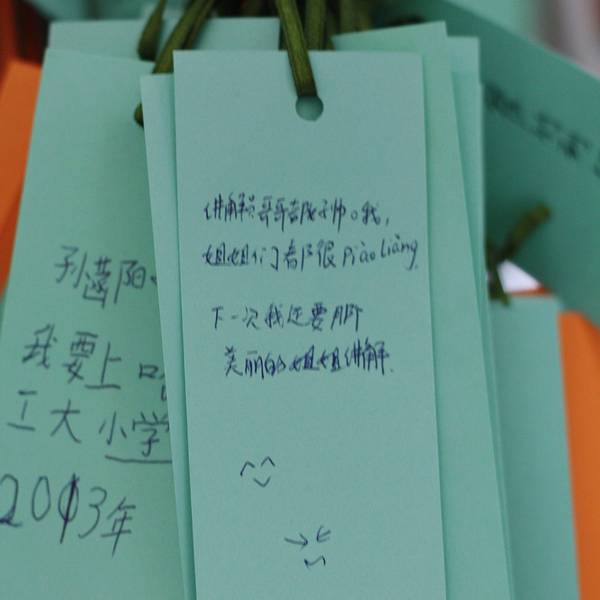 讲解员哥哥都好帅。我,
姐姐们都很piào liàng.
下一次我还要听
美丽的姐姐讲解.
孙茜阳
我要上哈
工大小学
2013年